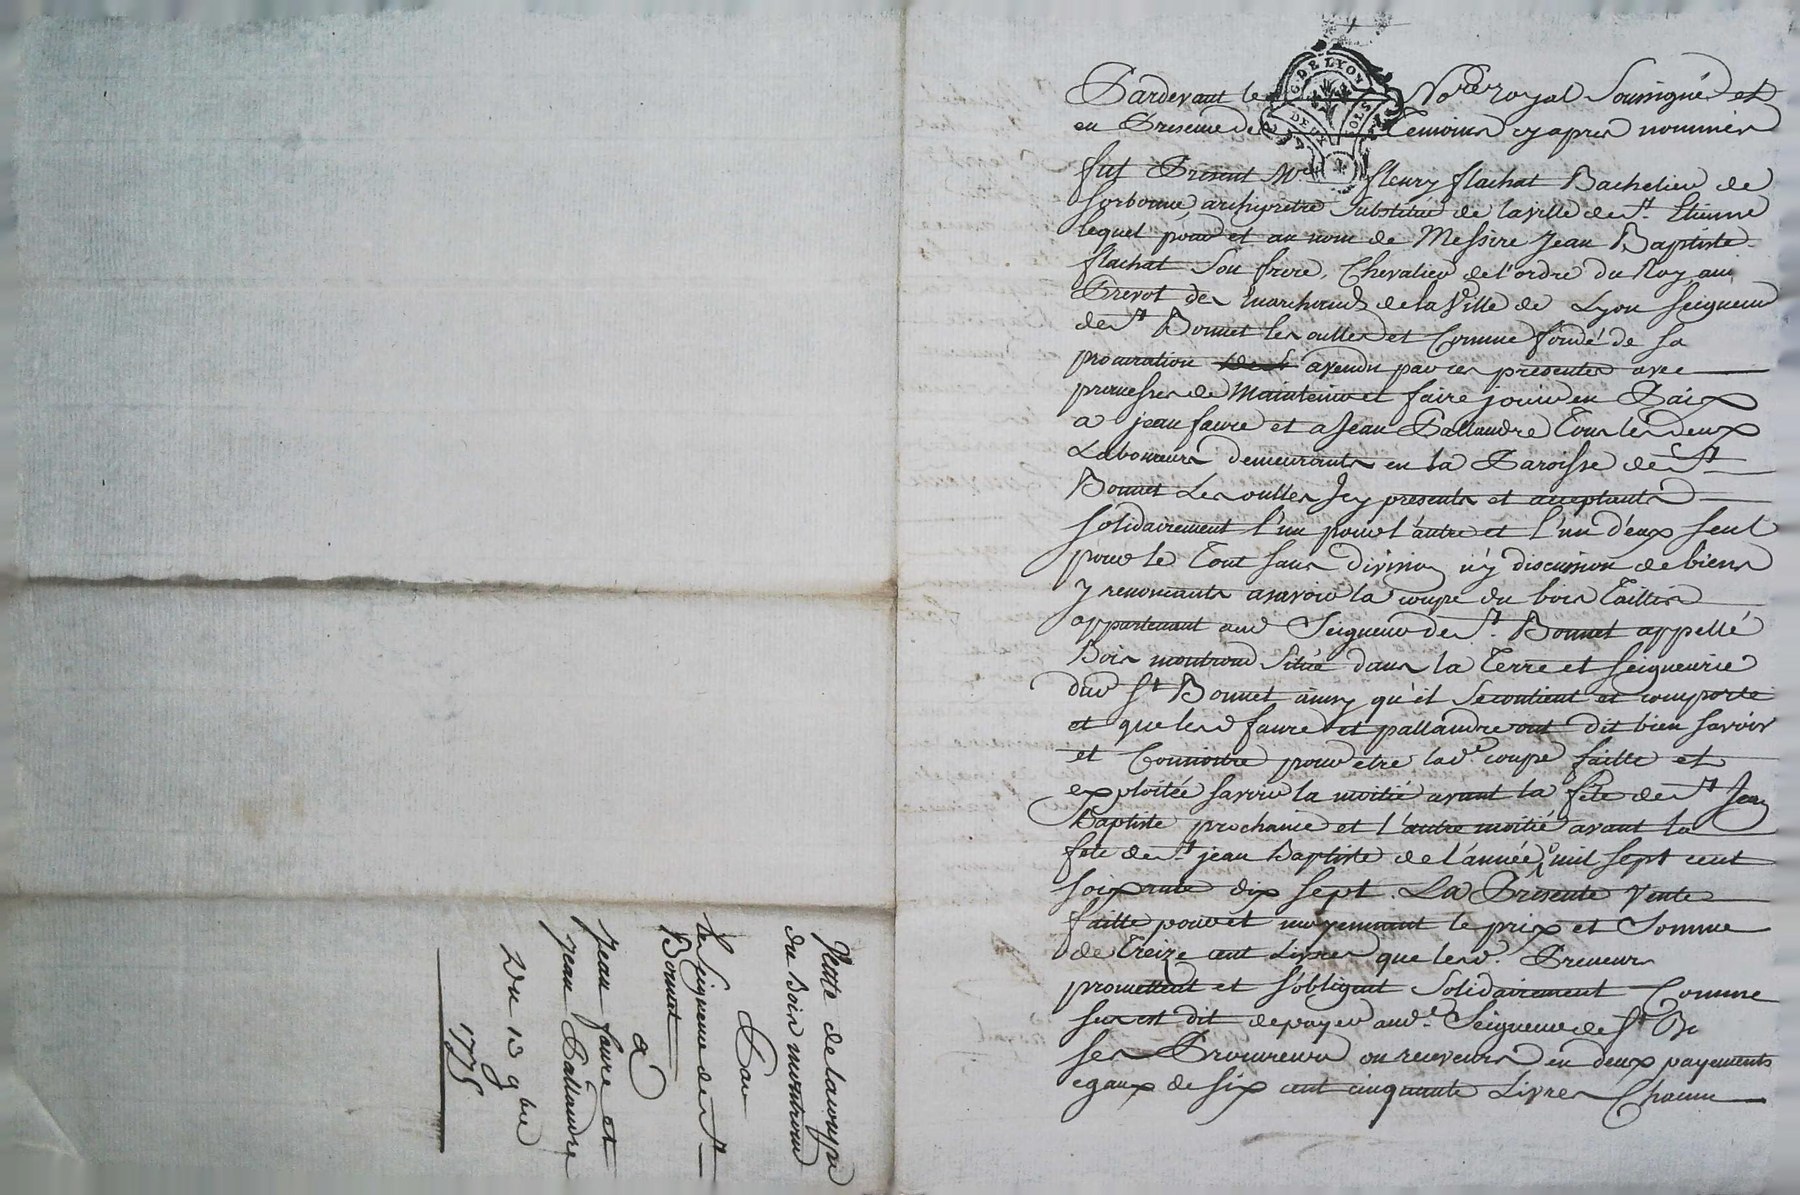 G. DE LYON
DEUX SOLS
Pardevant le No.re royal Soussigné et
en Presence des Temoins cy apres nommés
fut Present M.re fleury flachat Bachelier de
Sorbonne, archiprêtre Substitué de la ville de St. Etienne
lequel pour et au nom de Messire Jean Baptiste
flachat Son frere, Chevalier de l'ordre du Roy
Prevot des marchands de la Ville de Lyon Seigneur
de St Bonnet les oulles et Comme fondé de Sa
procuration a vendu par ces presentes avec
promesses de Maintenir et faire jouir en Paix
a jean faure et a Jean Pallandre Tous les deux
Laboureurs demeurants en la Paroisse de St
Bonnet Les oulles Icy presents et acceptants
Solidairement l'un pour l'autre et l'un d'eux Seul
pour le Tout Sans division n'y discussion de biens
y renoncants asavoir la coupe du bois Taillis
appartenant aud Seigneur de St. Bonnet appellé
Bois montrond Situé dans la Terre et Seigneurie
dud St Bonnet ainsy qu'il Se contient et comporte
et que lesd faure et pallandre ont dit bien Savoir
et Connoitre pour etre lad.e coupe faitte et
exploitée Savoir la moitié avant la fête de St Jean
Baptiste prochaine et l'autre moitié avant la
fete de St jean Baptiste de l'année mil Sept cent
Soixante dix Sept. La Presente Vente
faitte pour et moyennant le prix et Somme
de Treize cent Livres que lesd. Preneurs
promettent et S'obligent Solidairement Comme
Sus est dit de payer aud.t Seigneur de St Bo
Ses Procureurs ou receveurs en deux payements
egaux de Six cent cinquante Livres Chacun
Vente de la coupe
du Bois montrond
Par
Le Seigneur de St
Bonnet
à
Jean faure et
Jean Pallandre
Du 13 9bre
1775